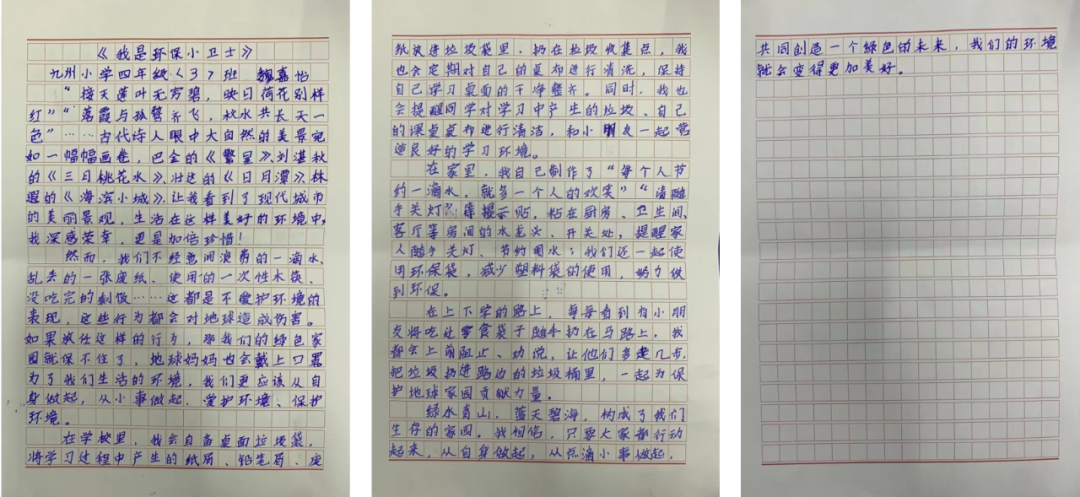 《我是环保小卫士》
九州小学四年级〈3〉班 魏嘉怡
“接天莲叶无穷碧，映日荷花别样
红”“落霞与孤鹜齐飞，秋水共长天一
色”……古代诗人眼中大自然的美景宛
如一幅幅画卷，巴金的《繁星》、刘湛秋
的《三月桃花水》、壮的《日月潭》林
遐的《海滨小城》，让我看到了现代城市
的美丽景观，生活在这样美好的环境中，
我深感荣幸，更是加倍珍惜！
然而，我们不经意间浪费的一滴水、
乱丢的一张废纸、使用的一次性木筷、
没吃完的剩饭……这都是不爱护环境的
表现，这些行为都会对地球造成伤害。
如果放任这样的行为，那我们的绿色家
园就保不住了，地球妈妈也会戴上口罩
为了我们生活的环境，我们更应该从自
身做起，从小事做起，爱护环境、保护
环境。
在学校里，我会自备桌面垃圾袋，
将学习过程中产生的纸屑、铅笔屑、废
纸装进垃圾袋里，扔在垃圾收集点，我
也会定期对自己的桌布进行清洗，保持
自己学习桌面的干净整齐。同时，我也
会提醒同学对学习中产生的垃圾、自己
的课桌桌布进行清洁，和小朋友一起营
造良好的学习环境。
在家里，我自己制作了“每个人节
约一滴水，就多一个人的欢笑”“请随
手关灯”等提示贴，粘在厨房、卫生间、
客厅等房间的水龙头、开关处，提醒家
人随手关灯、节约用水；我们还一起使
用环保袋，减少塑料袋的使用，努力做
到环保。
在上下学的路上，每每看到有小朋
友将吃过零食袋子随手扔在马路上，我
都会上前阻止、劝说，让他们多走几步，
把垃圾扔进路边的垃圾桶里，一起为保
护地球家园贡献力量。
绿水青山，蓝天碧海，构成了我们
生存的家园。我相信，只要大家都行动
起来，从自身做起，从点滴小事做起，
共同创造一个绿色的未来，我们的环境
就会变得更加美好。